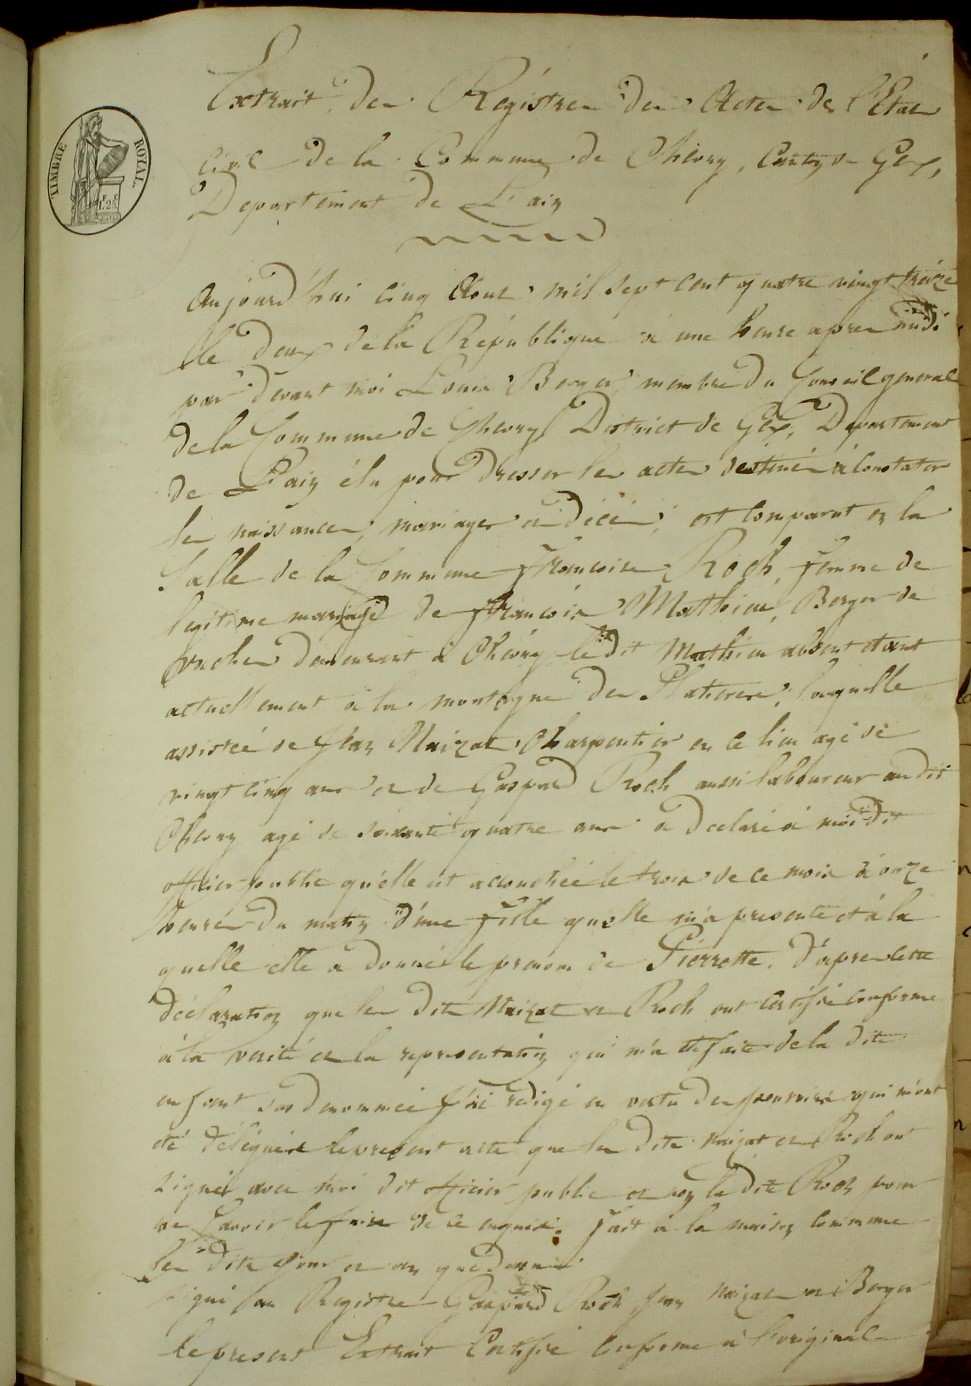 TIMBRE ROYAL
Extrait des Régistres des Actes de l'État
Civil de la Commune de Chévry, Canton de Gex,
Département de L'ain
Aujourd'hui cinq Aout mil sept cent quatre vingt treize
le deux de la République à une heure apres midi
par devant moi Louis Berger membre du Conseil general
de la Commune de Chevry District de Gex, Departement
de L'ain élu pour dresser les actes destinés à Constater
les naissances, mariages et décès, est Comparut en la
Salle de la Commune Francoise Roch, femme de
legitime mariage de Francois Mathieu, Berger de
vaches demeurant à Chévry le dit Mathieu absent etant
actuellement à la montagne de laquelle
assistée de Jean Maizat Charpentier en ce lieu agé de
vingt cinq ans et de Gaspard Roch aussi laboureur au dit
Chevry agé de soixante quatre ans a declaré à moi dit
officier public qu'elle est accouchée le trois de ce mois à onze
heures du matin d'une fille quelle m'a presenté et à la
quelle elle a donné le prenom de Pierrette. d'apres cette
déclaration que les dits Maizat et Roch ont Certifié conforme
à la verité et la representation qui m'a été faite de la dite
enfant susdenommée J'ai rédigé en vertu des pouvoirs qui m'ont
été délégués le present acte que les dits Maizat et Roch ont
signés avec moi dit officier public et non la dite Roch pour
ne Savoir le faire de ce enquise. fait à la maison Commune
les dits jour et an que dessus
signé au Registre Gaspard Roch Jean Maizat et Berger
le present Extrait Certifié Conforme à l'original